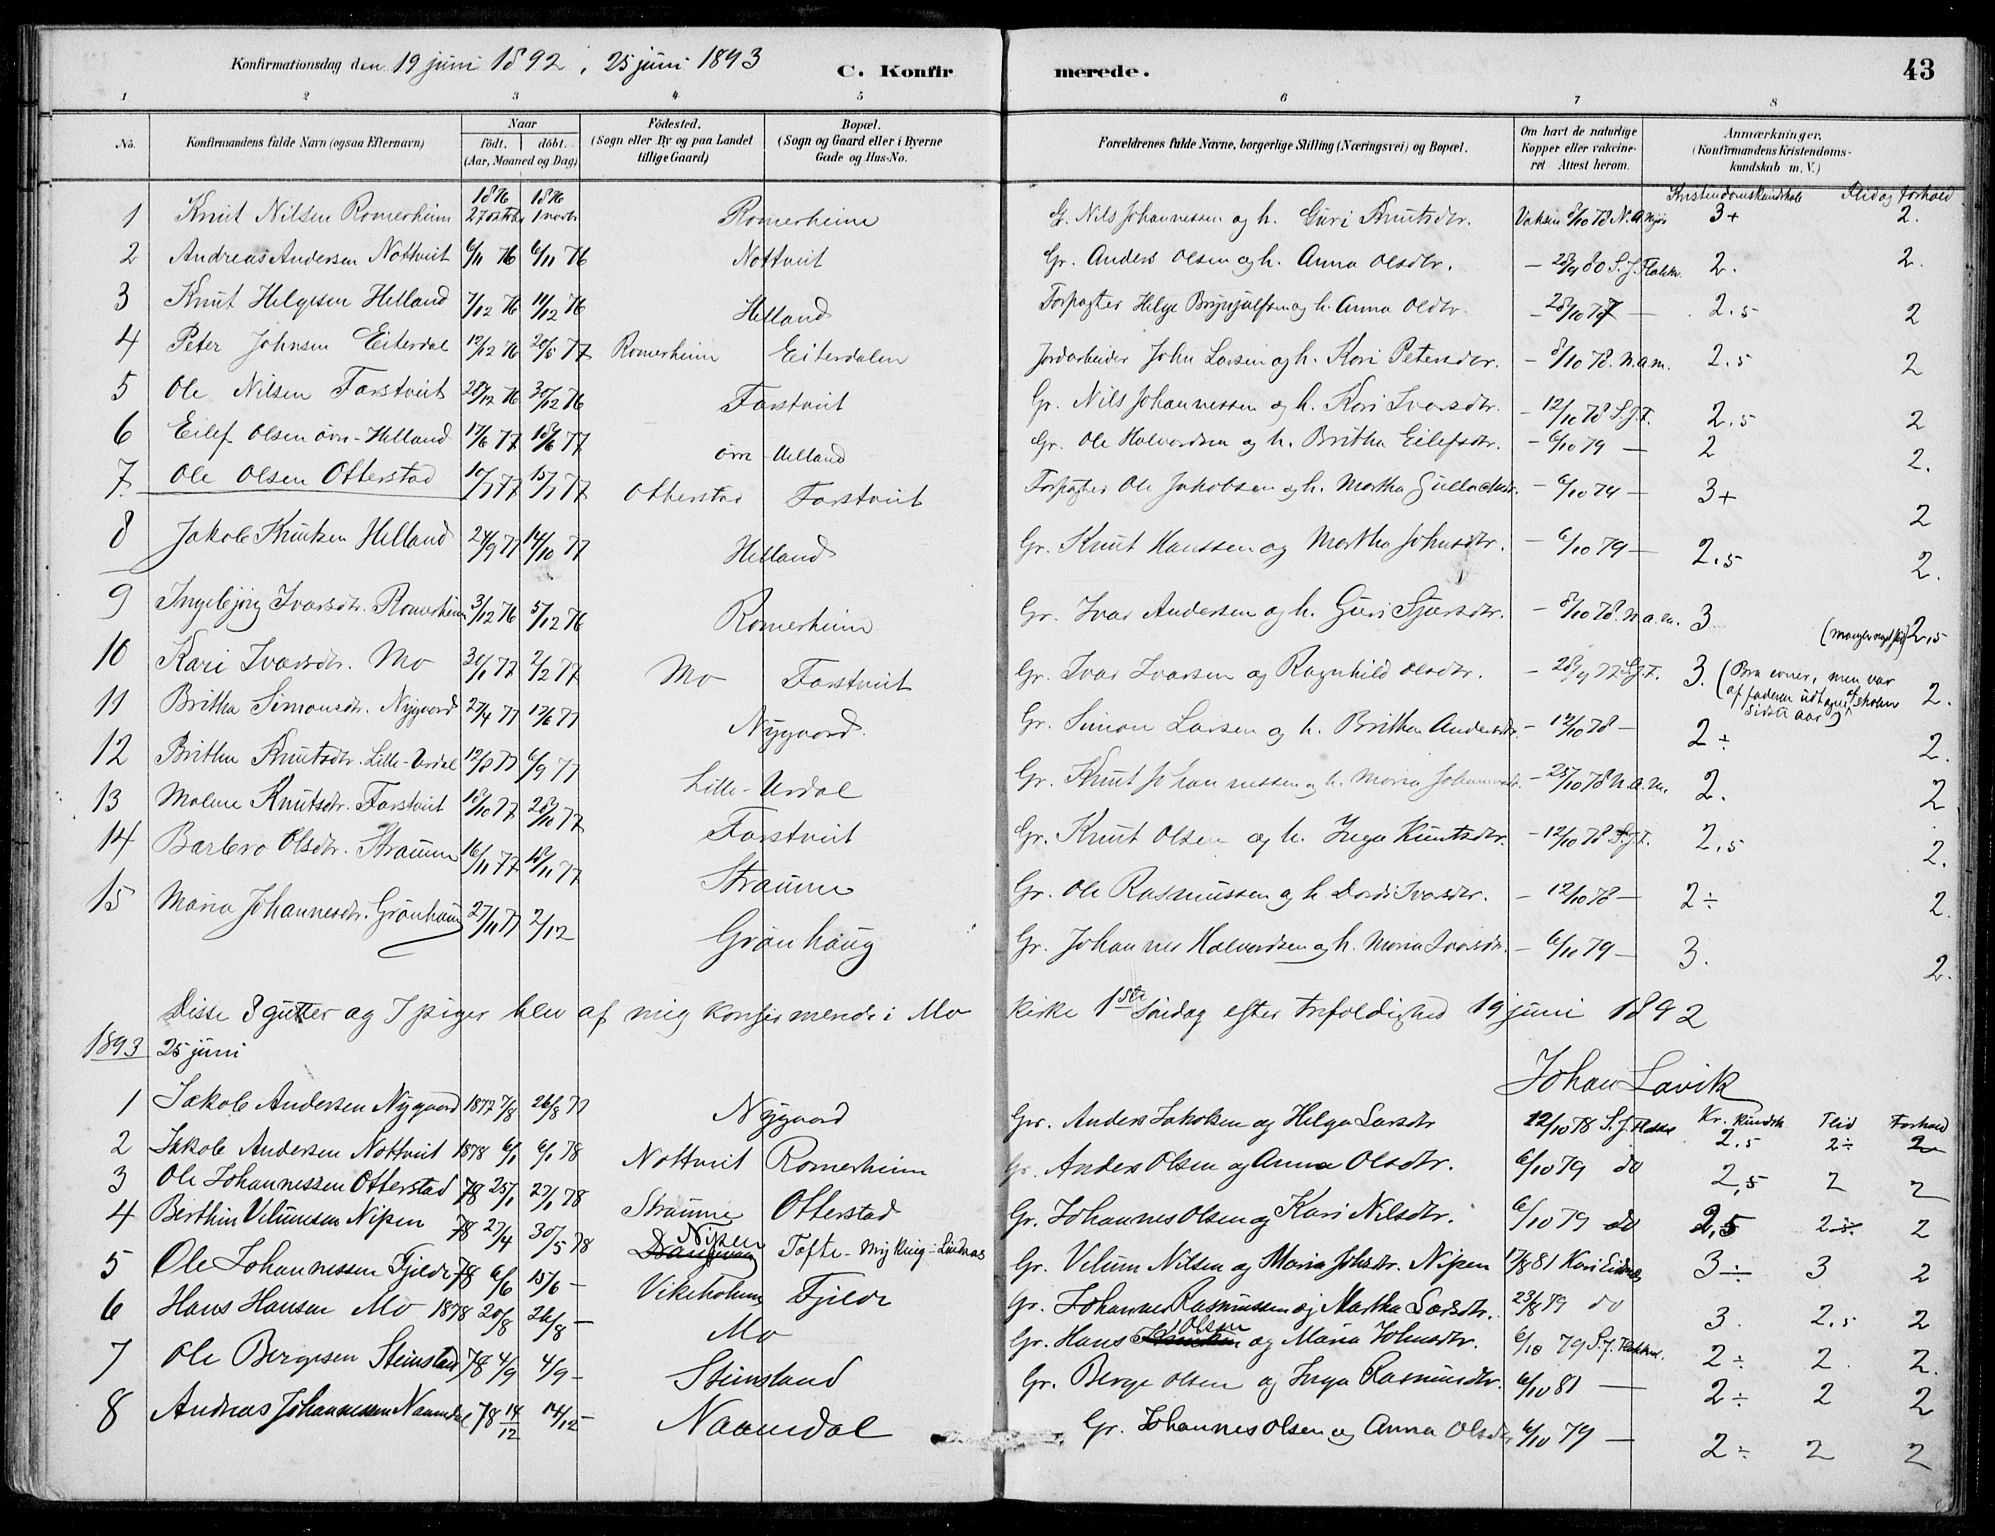 Konfirmationsdag den 19 juni 1892, 25 juni 1893 C. Konfirmerede. 43
1 2 3 4 5 6 7 8
No. Konfirmandens fulde Navn (ogsaa Efternavn) Naar födt. döbt. (Aar, Maaned og Dag) Födested. (Sogn eller By og paa Landet tillige Gaard) Bopæl. (Sogn og Gaard eller i Byerne Gade og Hus-No. Forældrenes fulde Navne, borgerlige Stilling (Næringsvei) og Bopæl. Om havt de naturlige Kopper eller vakcineret Attest herom. Anmærkninger. (Konfirmandens Kristendomskundskab m. V.)
1876 1876 Kristendomskundskab Flid og forhold
1 Knut Nilsen Romerheim 27 oktbr 1 novbr Romerheim G. Nils Johannessen og h. Guri Knutsdtr. Vaksin 8/10 78 3+ 2.
2 Andreas Andersen Nottveit 6/11 76 6/11 76 Nottveit Gr. Anders Olsen og h. Anna Olsdtr. 2. 2.
3 Knut Helgesen Helland 7/12 76 10/12 76 Helland Forpagter Helge Brynjulfsen og h. Anna Oldtr. – 28/10 77 – 2.5 2
4 Peter Johnsen Eiterdal 12/12 76 20/5 77 Romerheim Eiterdalen Jordarbeider John Larsen og h. Kari Petersdtr. – 8/10 78. N.a.M. 2.5 2
5 Ole Nilsen Farstveit 20/12 76 30/12 76 Farstveit Gr. Nils Johannessen og h. Kari Ivarsdtr. – 12/10 78 S.J.F. 2.5 2
6 Eilef Olsen øvre-Helland 17/6 77 18/6 77 øvre Helland Gr. Ole Halvordsen og h. Britha Eilefsdtr. – 6/10 79 – 2 2.
7. Ole Olsen Otterstad 10/7 77 15/7 77 Otterstad Farstveit Forpagter Ole Jakobsen og h. Martha – 6/10 79 – 3+ 2
8 Jakob Knutsen Helland 24/9 77 14/10 77 Helland Gr. Knut Hanssen og Martha Johnsdtr. – 6/10 79 – 2.5 2.
9 Ingebjørg Ivarsdtr. Romerheim 3/12 76 5/12 76 Romerheim Gr. Ivar Andersen og h. Guri – 8/10 78. N.a.M. 3 2,5
10 Kari Ivarsdtr. Mo 30/1 77 2/2 77 Mo Farstveit Gr. Ivar Ivarsen og Ragnhild Olsdtr. – S.J.F. 3. (Bra evner, men var af faderen udtagen af skolen sidste aar) 2.
11 Britha Simonsdtr. Nygaard 27/4 77 17/6 77 Nygaard Gr. Simon Larsen og h. Britha Andersdtr. – 12/10 78 – 2÷ 2.
12 Britha Knutsdtr. Lille-Urdal 12/8 77 6/9 77 Lille-Urdal Gr. Knut Johannessen og h. Maria – 28/10 78 N.a.M. 2. 2.
13 Malene Knutsdtr. Farstveit 18/10 77 28/10 77 Farstveit Gr. Knut Olsen og h. Inga Knutsdtr. – 12/10 78 S.J.F. 2,5 2.
14 Barbro Olsdtr. Straume 16/11 77 18/11 77 Straume Gr. Ole Rasmussen og h. Dordi Ivarsdtr. – 12/10 78 – 2÷ 2.
15 Maria Johannesdtr. Grønhaug 27/11 77 2/12 Grønhaug Gr. Johannes Halvordsen og h. Maria Ivarsdtr. – 6/10 79 – 3. 2.
Disse 8 gutter og 7 piger blev af mig konfirmerede i Mo kirke 1ste Søndag efter trefoldighed 19 juni 1892
Johan Lavik
1893 25 juni
Kr. kundsk Flid Forhold
1 Jakob Andersen Nygaard 1877 7/8 26/8 77 Nygaard Gr. Anders Jakobsen og Helga Larsdtr 12/10 78 S.J. 2,5 2÷ 2
2 Jakob Andersen Nottveit 1878 6/1 6/1 78 Nottveit Romerheim Gr. Anders Olsen og Anna Olsdtr. 6/10 79 do 2,5 2 2
3 Ole Johannessen Otterstad 78 25/1 27/1 78 Straume Otterstad Gr. Johannes Olsen og Kari Nilsdtr. 6/10 79 do 2,5 2÷ 2
4 Berthin Velumsen Nipen 78 27/4 30/5 78 Nipen Tofte-Myking-Lindaas Gr. Velum Nilsen og Maria Johsdtr. Nipen 17/8 81 3÷ 3 2
5 Ole Johannessen Fjelde 78 6/6 15/6 – Vikeholmen Fjelde Gr. Johannes Rasmussen og Martha Larsdtr. 23/8 79 do 3. 2.5 2
6 Hans Hansen Mo 1878 20/8 26/8 – Mo Gr. Hans Olsen og Maria Johnsdtr. 6/10 79 S.J. 2÷ 2. 2.
7 Ole Bergesen Steinsland 78 4/9 4/9 – Steinsland Gr. Berge Olsen og Inga Rasmusdtr. 6/10 81 – 2÷ 2 2
8 Andreas Johannessen Naamdal 78 14/12 14/12 – Naamdal Gr. Johannes Olsen og Anna Olsdtr 6/10 79 – 2÷ 2 2